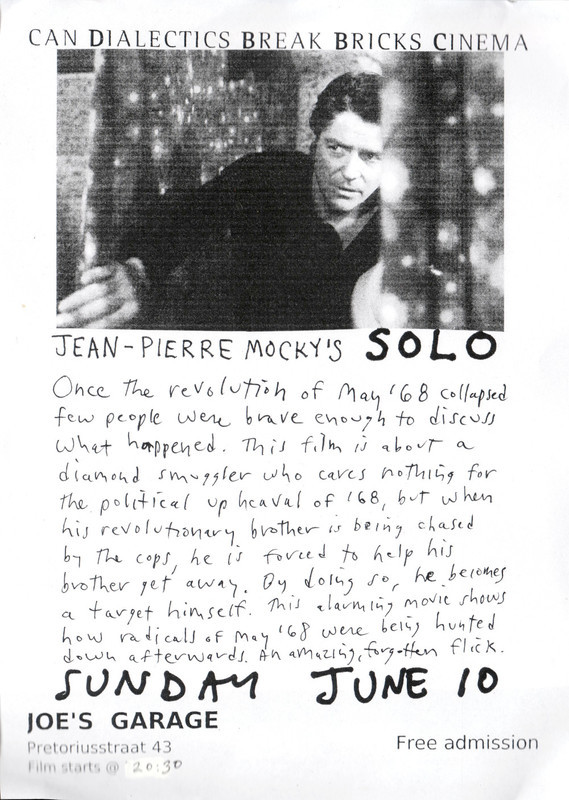 CAN DIALECTICS BREAK BRICKS CINEMA
JEAN-PIERRE MOCKY'S SOLO
Once the revolution of May '68 collapsed
few people were brave enough to discuss
what happened. This film is about a
diamond smuggler who cares nothing for
the political upheaval of '68, but when
his revolutionary brother is being chased
by the cops, he is forced to help his
brother get away. By doing so, he becomes
a target himself. This alarming movie shows
how radicals of May '68 were being hunted
down afterwards. An amazing, forgotten flick.
SUNDAY JUNE 10
JOE'S GARAGE
Pretoriusstraat 43
Free admission
Film starts @ 20:30